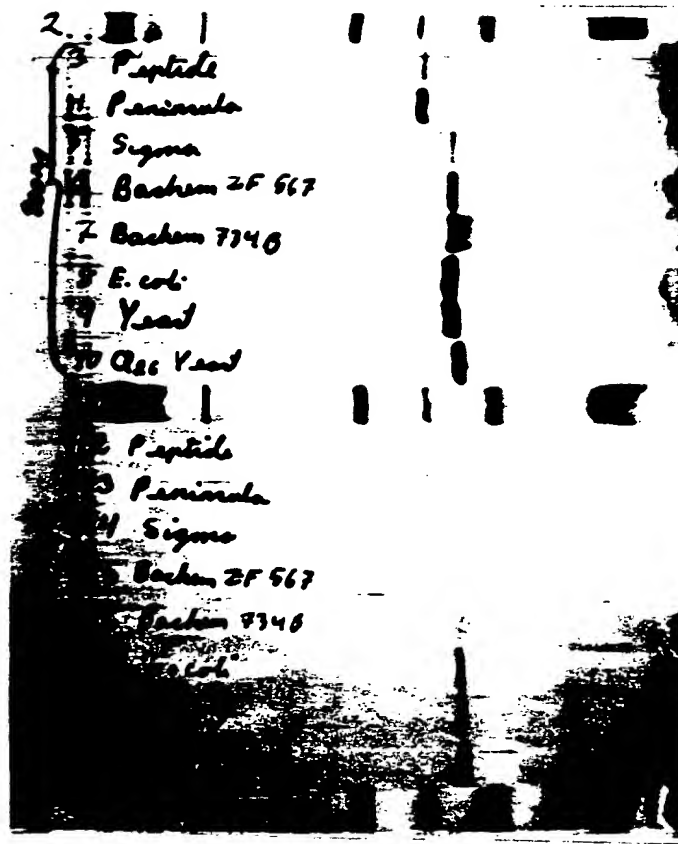 2..
3 Peptide
4 Peninsula
5 Sigma
6 Bachem ZF 567
7 Bachem 774B
8 E. coli
9 Yeast
10 Yeast
12 Peptide
13 Peninsula
14 Sigma
Bachem ZF 567
Bachem 734B
E. coli